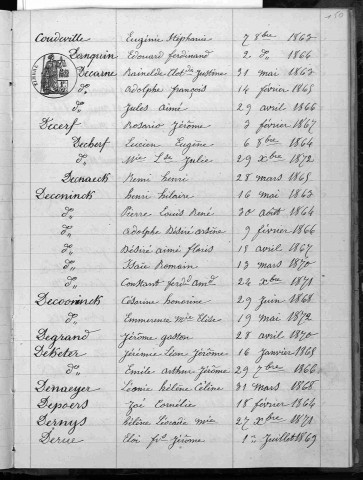 150
Coudeville Eugénie Stéphanie 7 8bre 1863
Danquin Edouard ferdinand 2 do 1866
Decarne Rainelde Clotde Justine 31 mai 1863
do Adolphe françois 14 février 1865
do Jules aimé 29 avril 1866
Decerf Rosario Jérôme 3 février 1867
Decherf Lucien Eugène 6 8bre 1864
do Mie Lse Julie 29 Xbre 1872
Decnaeck Remi henri 28 mars 1865
Deconinck henri hilaire 16 mai 1863
do Pierre Louis René 30 août 1864
do Adolphe Désiré arsène 9 février 1866
do Désiré aimé floris 15 avril 1867
do Isaïe Romain 13 mars 1870
do Constant ferdd amd 24 Xbre 1871
Decooninck Césarine honorine 29 Juin 1868
do Emmerence Mie Elise 19 mai 1872
Degrand Jérôme gaston 28 avril 1870
Debeter Jérémie Léon Jérôme 16 Janvier 1865
do Emile arthur Jérôme 29 7bre 1866
Demaeyer Léonie hélène Céline 31 mars 1868
Depoers Zoé Cornélie 18 février 1864
Dernys hélène Léocadie Mie 27 Xbre 1871
Dereu Eloi fs Jérôme 1er Juillet 1869